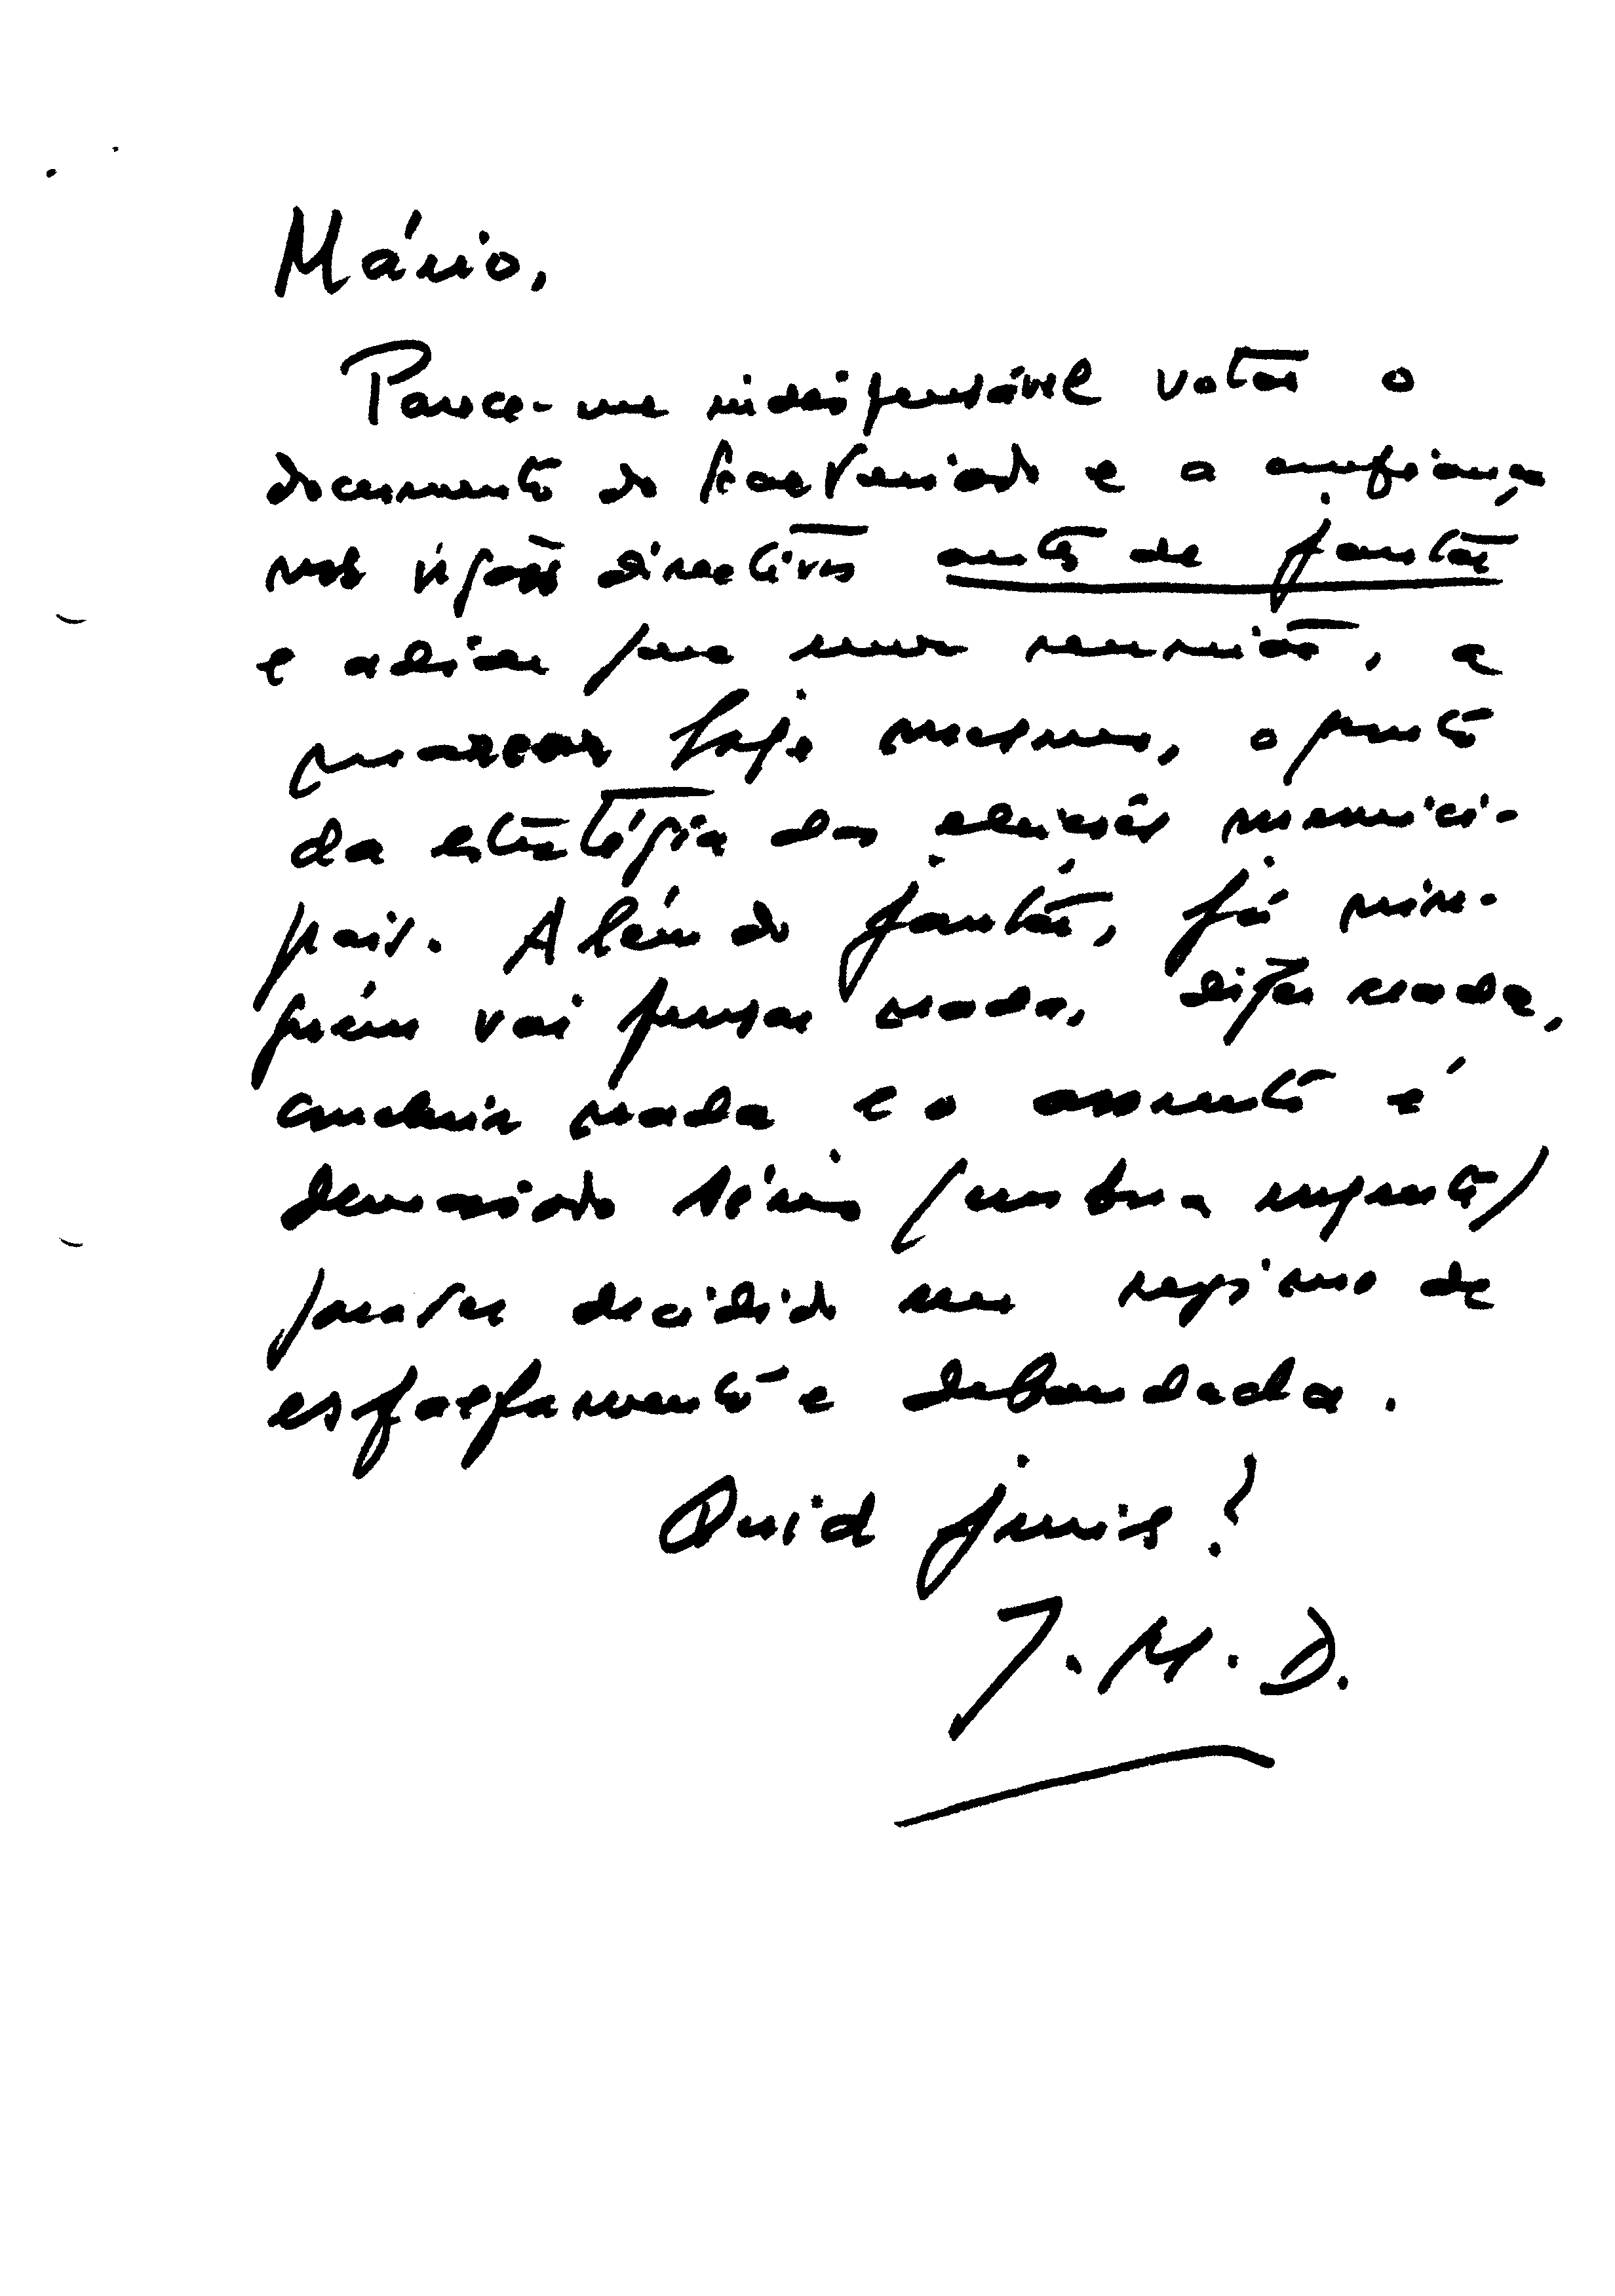 Mário,
Parece-me indispensável votar o
documento do Secretariado e a confiança
nos órgãos directivos antes de jantar
e adiar para uma reunião, a
marcar hoje mesmo, o ponto
da estratégia das eleições munici-
pais. Além do jantar, já nin-
guém vai pensar nada, dizer nada,
concluir nada e o assunto é
demasiado sério (em boa)
para ser decidido em regime de
esfalfamento e debandada.
Quid juris?
J.M.D.